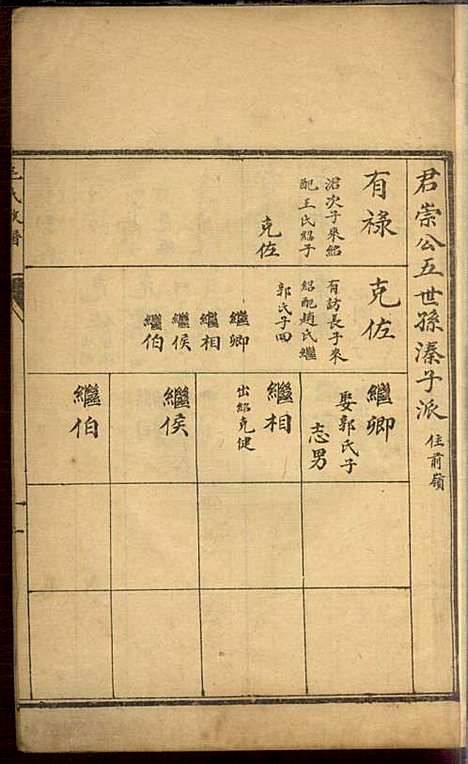 君崇公五世孫溱子派 住前嶺
有祿
沼次子來紹
配王氏紹子
克佐
克佐
有訪長子來
紹配趙氏繼
郭氏子四
繼卿
繼相
繼侯
繼伯
繼卿
娶郭氏子
志男
繼相
出紹克健
繼侯
繼伯
氏族譜